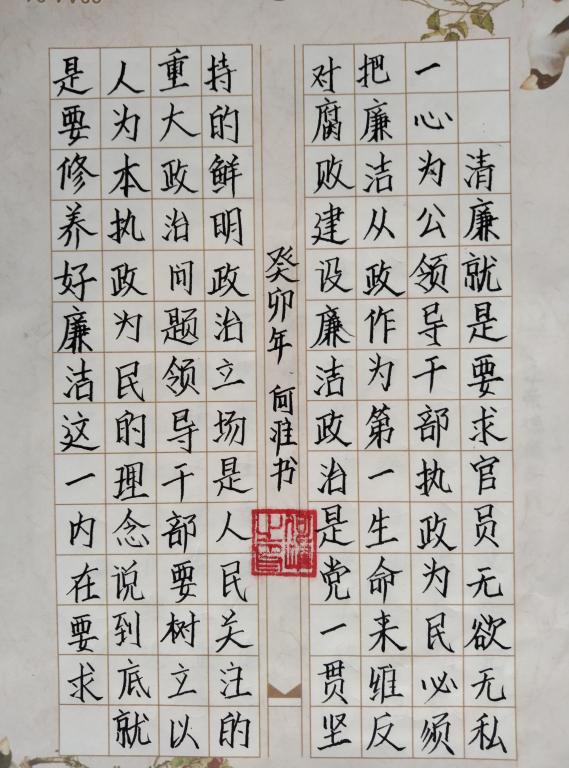 清廉就是要求官员无欲无私
一心为公领导干部执政为民必须
把廉洁从政作为第一生命来维反
对腐败建设廉洁政治是党一贯坚
持的鲜明政治立场是人民关注的
重大政治问题领导干部要树立以
人为本执政为民的理念说到底就
是要修养好廉洁这一内在要求
癸卯年 何淮书